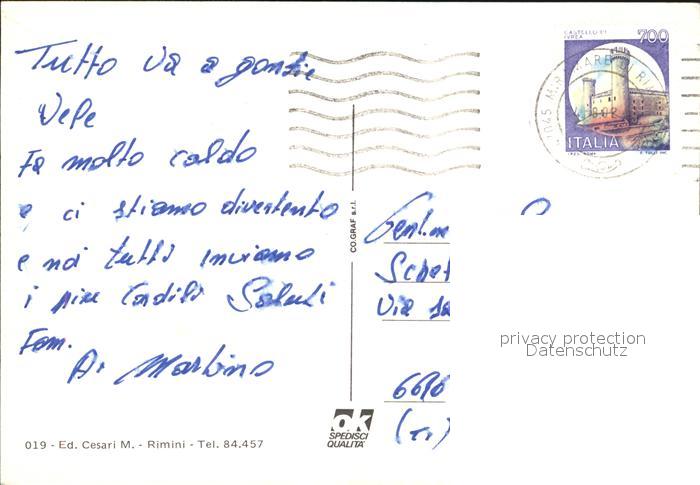 Tutto va a gonfie
Vele
Fa molto caldo
e ci stiamo divertento
e noi tutti inviamo
i piu Cordiali Saluti
Fam.
Di Martino
CO.GRAF s.r.l.
Gent.me
Via
(TI)
ok
SPEDISCI
QUALITA'
019 - Ed. Cesari M. - Rimini - Tel. 84.457
CASTELLO DI
IVREA
700
ITALIA
privacy protection
Datenschutz